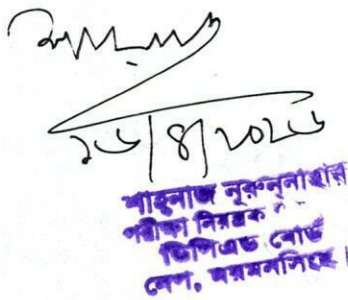 ১৬/৪/২০২৬
শাহনাজ নূরুননাহার
পরীক্ষা নিয়ন্ত্রক
ডিপিএড বোর্ড
নেপ, ময়মনসিংহ।